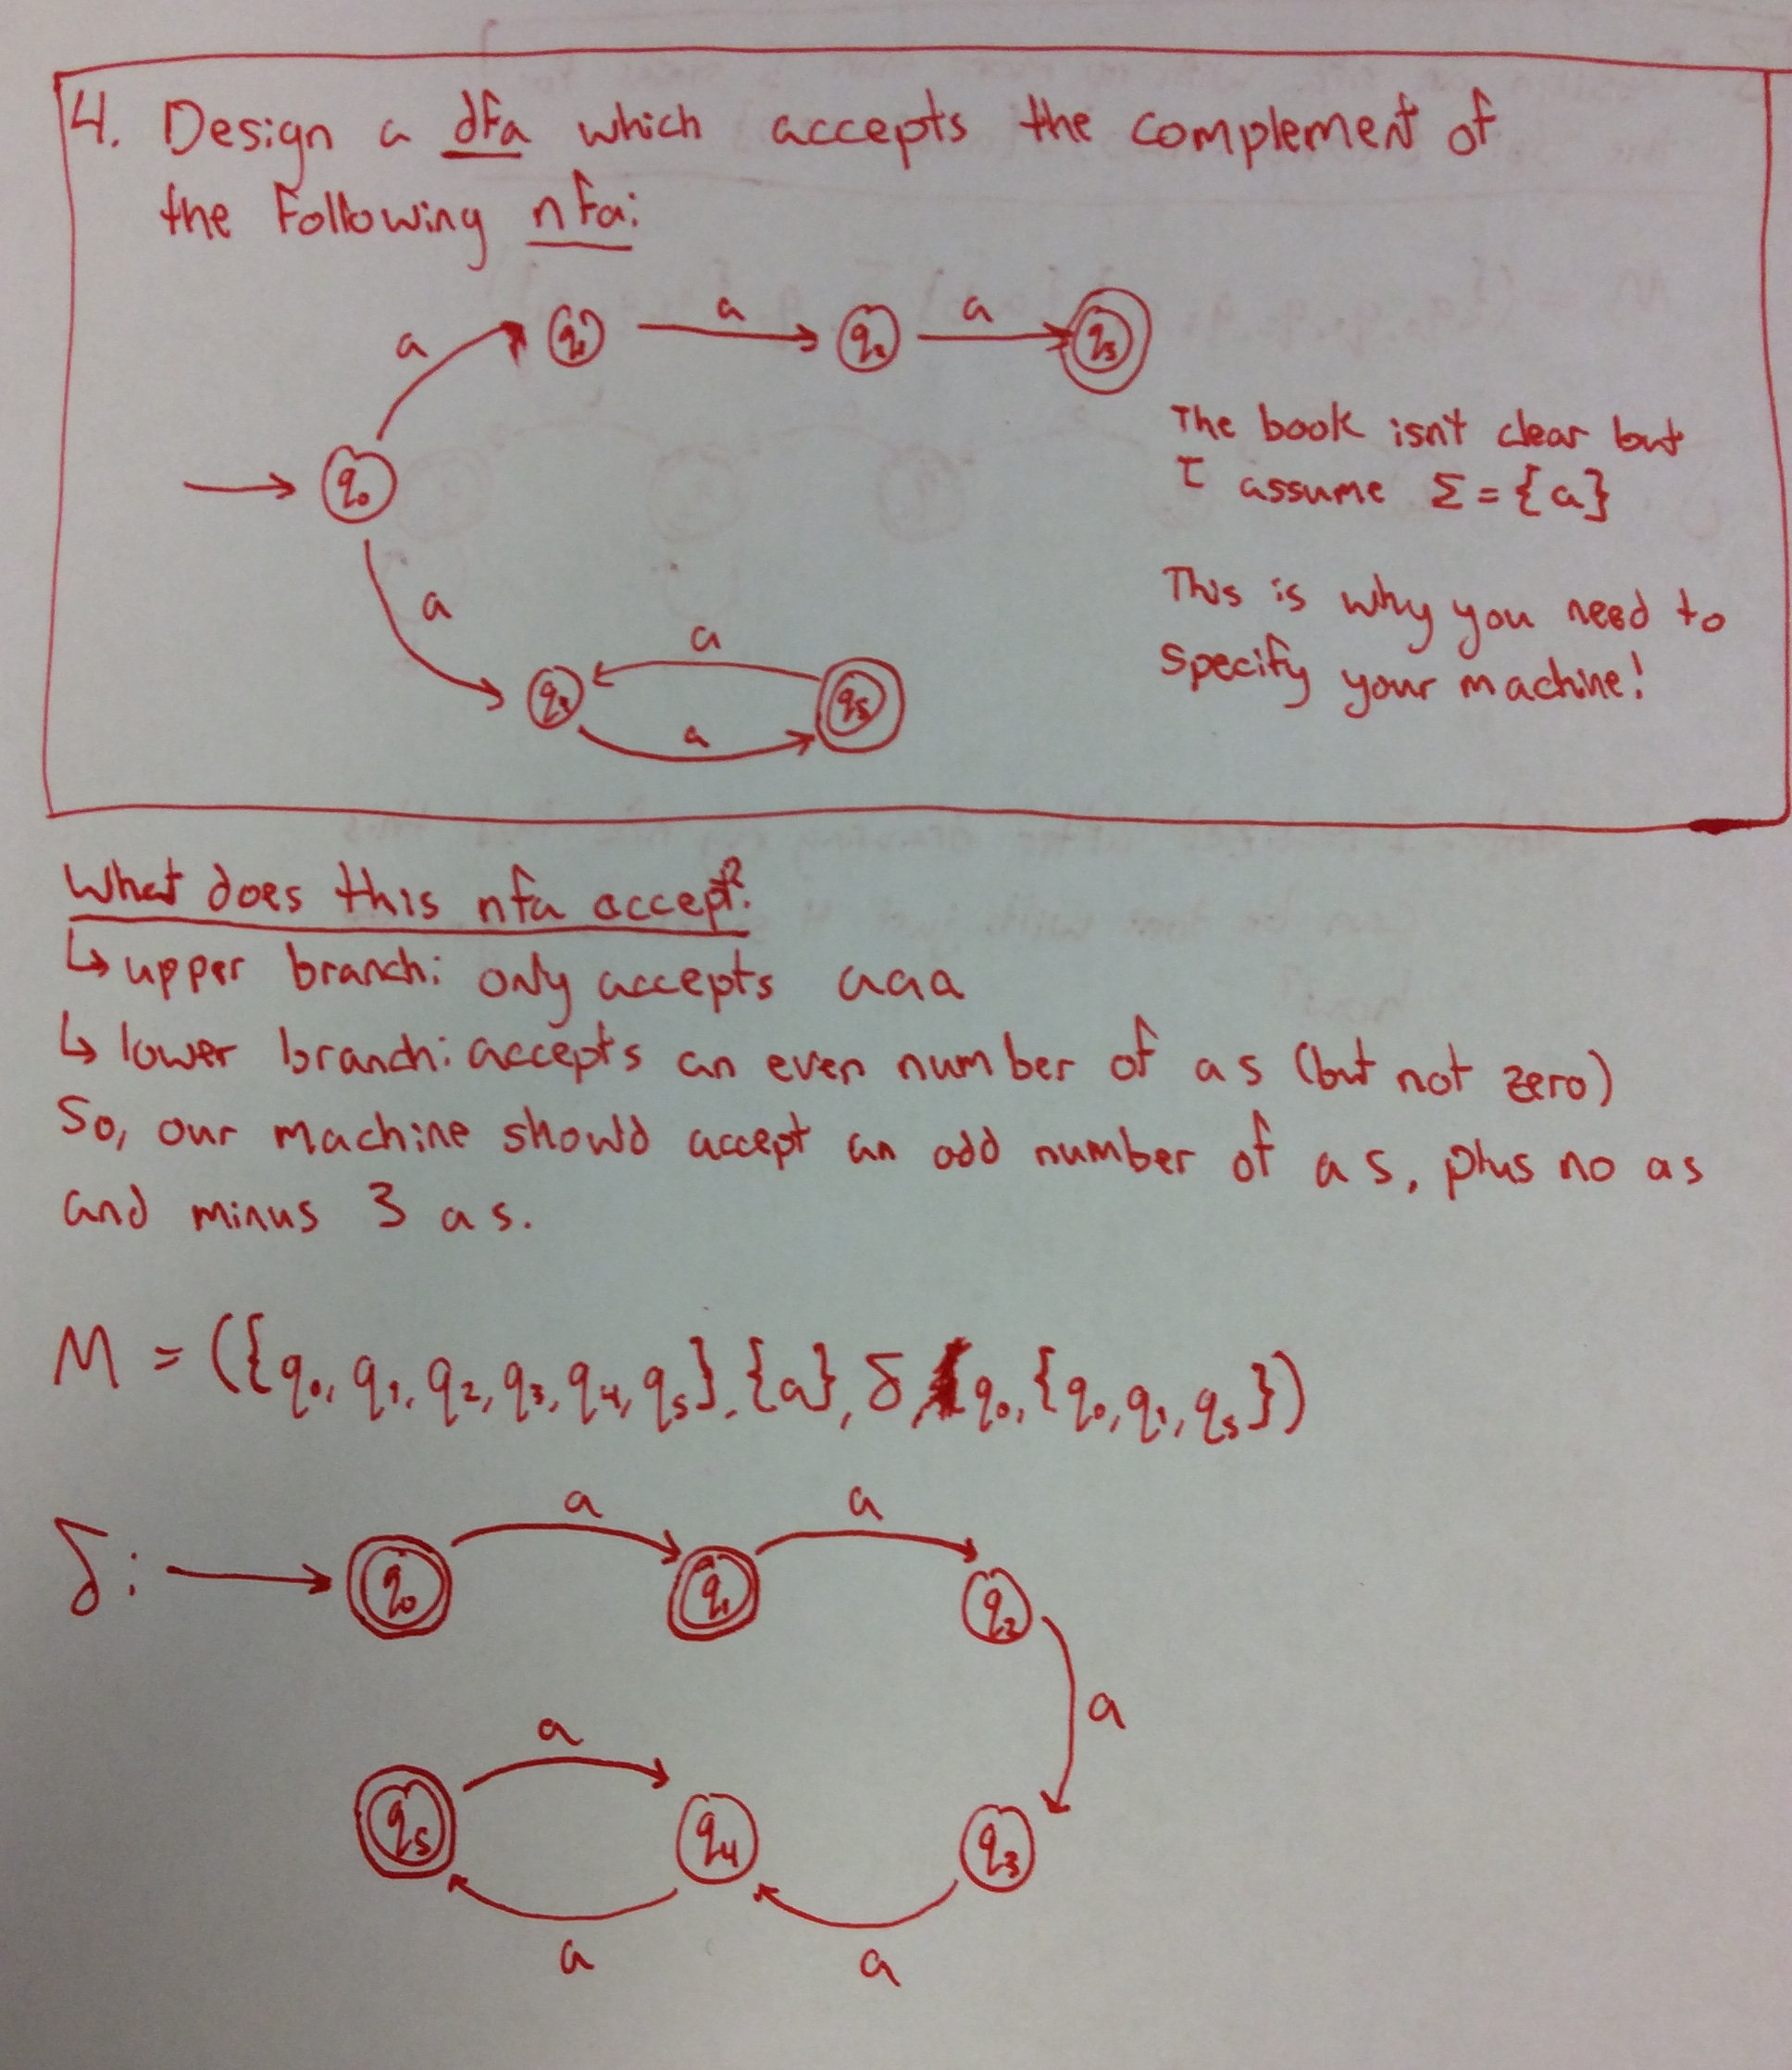 4. Design a dfa which accepts the complement of
the following nfa:
a
q₁
a
q₂
a
q₃
q₀
The book isn't clear but
I assume Σ = {a}
This is why you need to
specify your machine!
a
q₄
a
a
q₅
What does this nfa accept?
↳ upper branch: only accepts aaa
↳ lower branch: accepts an even number of as (but not zero)
So, our machine should accept an odd number of as, plus no as
and minus 3 as.
M = ({q₀, q₁, q₂, q₃, q₄, q₅}, {a}, δ, q₀, {q₀, q₁, q₅})
δ:
q₀
a
q₁
a
q₂
a
q₅
a
q₄
q₃
a
a